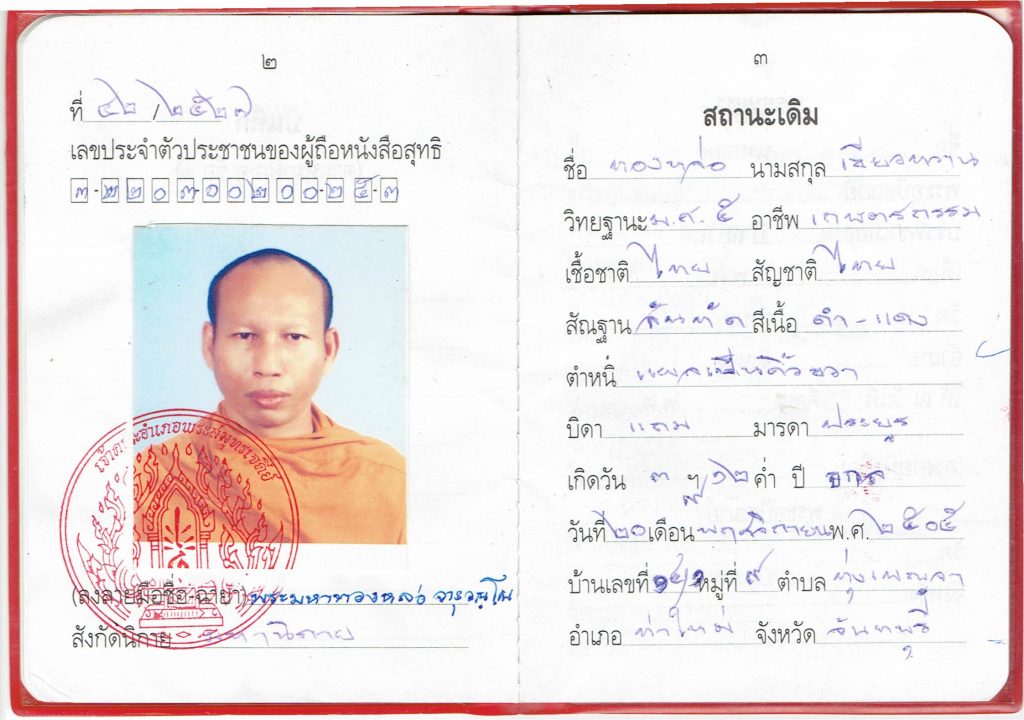 ๒
ที่ ๔๒ / ๒๕๒๗
เลขประจำตัวประชาชนของผู้ถือหนังสือสุทธิ
๓-๒๒๐๗-๐๐๒๐๐-๒๕-๓
เจ้าคณะอำเภอพระสมุทรเจดีย์
(ลงลายมือชื่อ-ฉายา) พระมหาทองหล่อ
สังกัดนิกาย มหานิกาย
๓
สถานะเดิม
ชื่อ ทองหล่อ นามสกุล เขียวหวาน
วิทยฐานะ พ.ศ. ๕ อาชีพ เกษตรกรรม
เชื้อชาติ ไทย สัญชาติ ไทย
สัณฐาน สันทัด สีเนื้อ ดำ-แดง
ตำหนิ แผลเป็นคิ้วขวา
บิดา แถม มารดา ประยูร
เกิดวัน ๓ ฯ ๑๒ ค่ำ ปี ขาล
วันที่ ๒๐ เดือน พฤศจิกายน พ.ศ. ๒๕๐๕
บ้านเลขที่ หมู่ที่ ๙ ตำบล ทุ่งเบญจา
อำเภอ ท่าใหม่ จังหวัด จันทบุรี